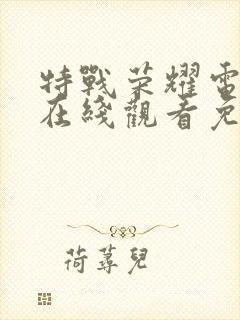 特戰荣耀電
在綫觀看免
荷蕁兒